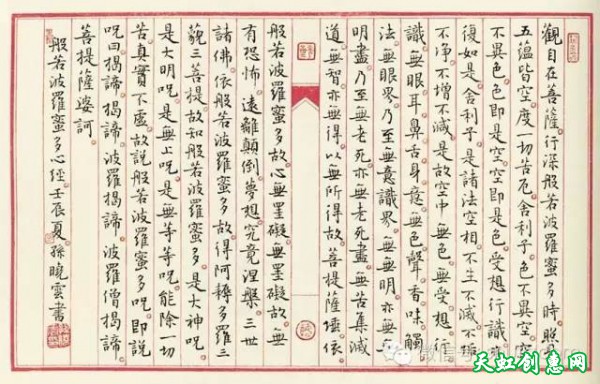 觀自在菩薩行深般若波羅蜜多時照見
五蘊皆空度一切苦厄舍利子色不異空空
不異色色即是空空即是色受想行識亦
復如是舍利子是諸法空相不生不滅不垢
不淨不增不減是故空中無色無受想行
識無眼耳鼻舌身意無色聲香味觸
法無眼界乃至無意識界無無明亦無無
明盡乃至無老死亦無老死盡無苦集滅
道無智亦無得以無所得故菩提薩埵依
般若波羅蜜多故心無罣礙無罣礙故無
有恐怖遠離顛倒夢想究竟涅槃三世
諸佛依般若波羅蜜多故得阿耨多羅三
藐三菩提故知般若波羅蜜多是大神咒
是大明咒是無上咒是無等等咒能除一切
苦真實不虛故說般若波羅蜜多咒即說
咒曰揭諦揭諦波羅揭諦波羅僧揭諦
菩提薩婆訶
般若波羅蜜多心經壬辰夏孫曉雲書
微信
天虹创意网